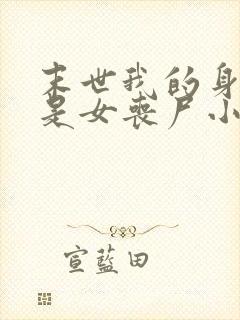 末世我的身
是女丧尸小
宣蓝田